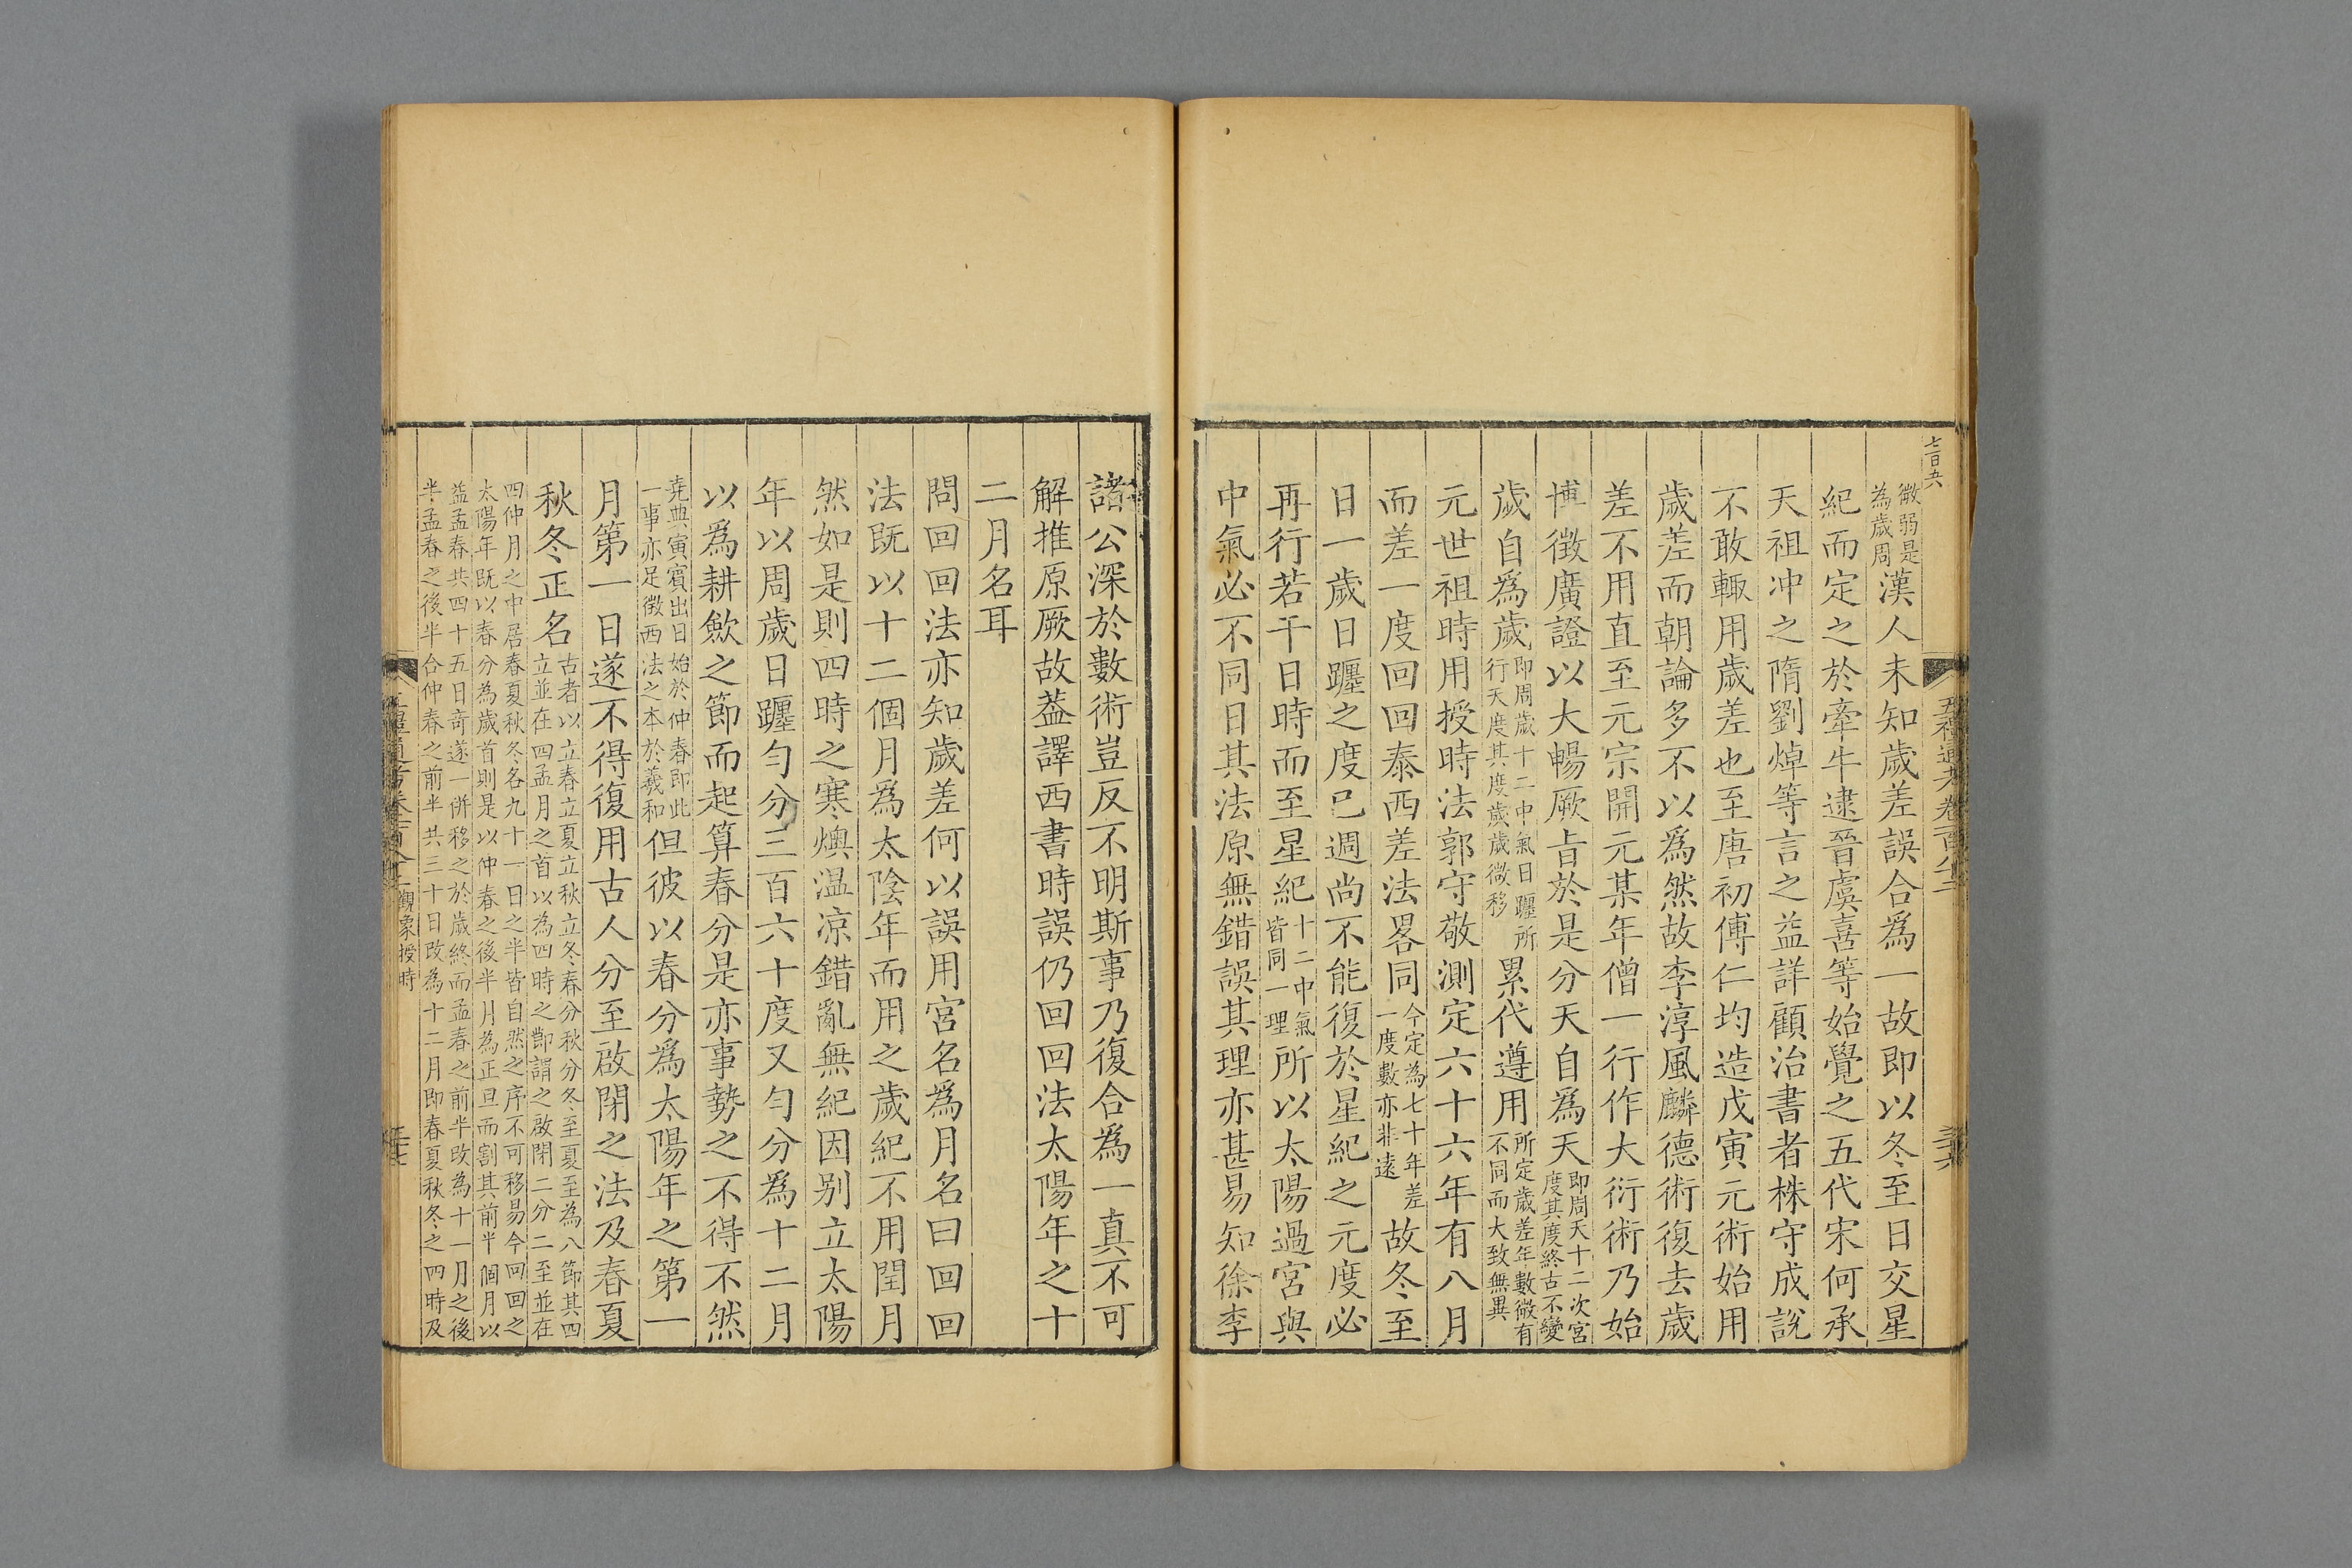 微弱是
為歲周
漢人未知歲差誤合爲一故即以冬至日交星
紀而定之於牽牛逮晉虞喜等始覺之五代宋何承
天祖冲之隋劉焯等言之益詳顧治書者株守成說
不敢輙用歲差也至唐初傅仁均造戊寅元術始用
歲差而朝論多不以爲然故李淳風麟德術復去歲
差不用直至元宗開元某年僧一行作大衍術乃始
博徵廣證以大暢厥旨於是分天自爲天
即周天十二次宮
度其度終古不變
歲自爲歲
即周歲十二中氣日躔所
行天度其度歲歲微移
累代遵用
所定歲差年數微有
不同而大致無異
元世祖時用授時法郭守敬測定六十六年有八月
而差一度回回泰西差法畧同
今定為七十年差
一度數亦非遠
故冬至
日一歲日躔之度已週尚不能復於星紀之元度必
再行若干日時而至星紀
十二中氣
皆同一理
所以太陽過宮與
中氣必不同日其法原無錯誤其理亦甚易知徐李
諸公深於數術豈反不明斯事乃復合為一真不可
解推原厥故葢譯西書時誤仍回回法太陽年之十
二月名耳
問回回法亦知歲差何以誤用宮名爲月名曰回回
法既以十二個月爲太陰年而用之歲紀不用閏月
然如是則四時之寒燠温凉錯亂無紀因别立太陽
年以周歲日躔勻分三百六十度又勻分爲十二月
以為耕斂之節而起算春分是亦事勢之不得不然
堯典寅賓出日始於仲春即此
一事亦足徵西法之本於羲和
但彼以春分爲太陽年之第一
月第一日遂不得復用古人分至啟閉之法及春夏
秋冬正名
古者以立春立夏立秋立冬春分秋分冬至夏至為八節其四
立並在四孟月之首以為四時之節謂之啟閉二分二至並在
四仲月之中居春夏秋冬各九十一日之半皆自然之序不可移易今回回之
太陽年既以春分為歲首則是以仲春之後半月為正旦而割其前半個月以
益孟春共四十五日奇遂一併移之於歲終而孟春之前半改為十一月之後
半孟春之後半合仲春之前半共三十日改為十二月即春夏秋冬之四時及
五禮通考卷一百八十二
三六
觀象授時
三七